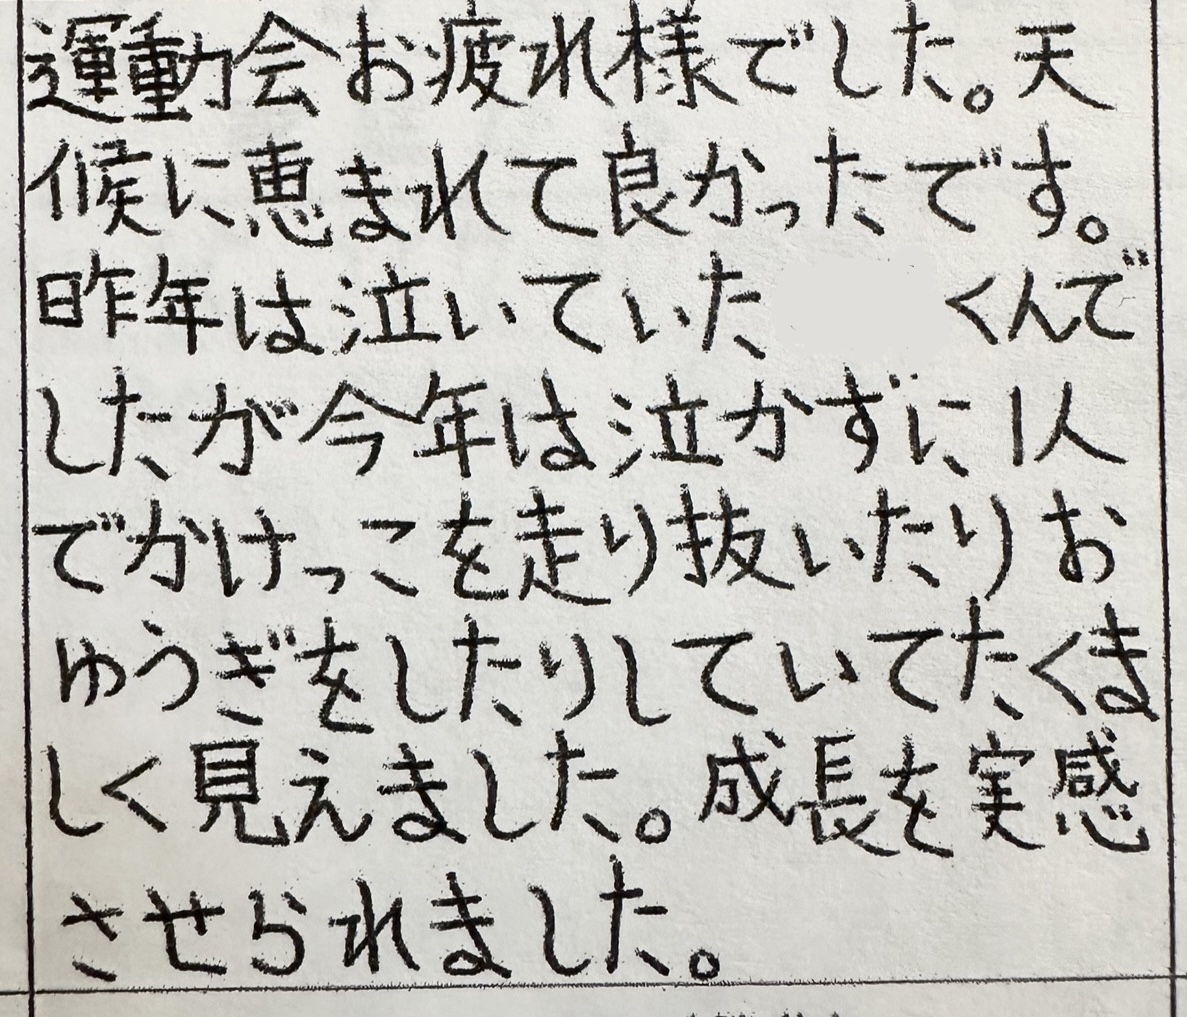 運動会お疲れ様でした。天
候に恵まれて良かったです。
昨年は泣いていた くんで
したが今年は泣かずに1人
でかけっこを走り抜いたりお
ゆうぎをしたりしていてたくま
しく見えました。成長を実感
させられました。